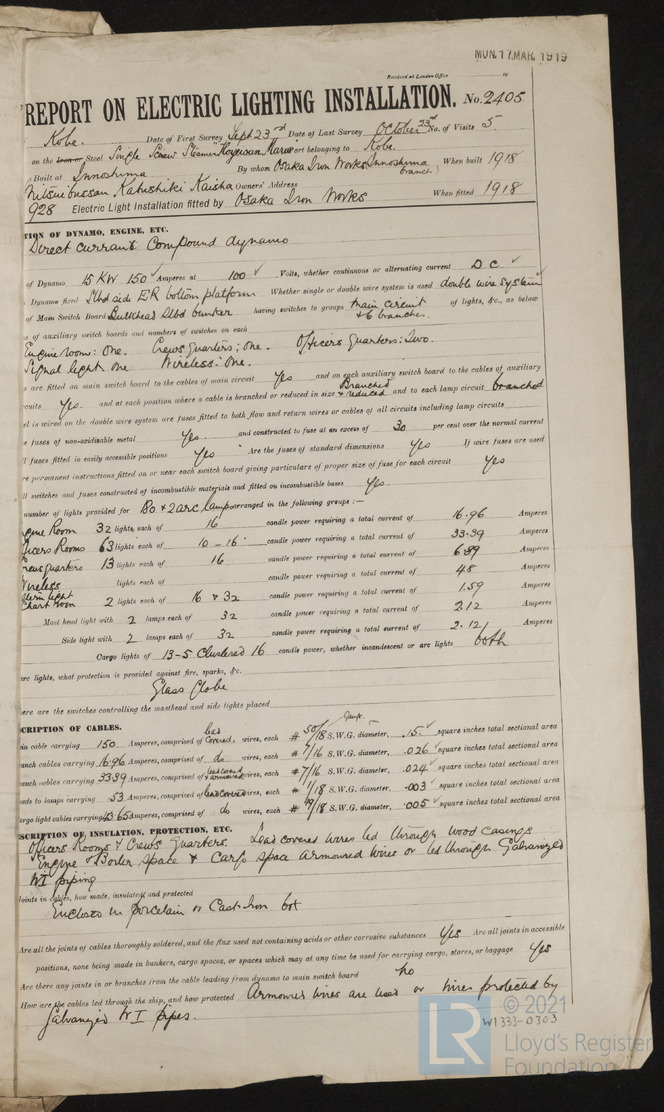 MON. 17. MAR. 1919
Received at London Office 19
REPORT ON ELECTRIC LIGHTING INSTALLATION. No. 2405
Kobe. Date of First Survey Sept 23rd Date of Last Survey October 23rd No. of Visits 5
on the Iron or Steel Single Screw Steamer Maru Port belonging to Kobe.
Built at Innoshima By whom Osaka Iron Works (Innoshima branch) When built 1918
Kabushiki Kaisha Owners' Address
928 Electric Light Installation fitted by Osaka Iron Works When fitted 1918
TION OF DYNAMO, ENGINE, ETC.
Direct currant Compound dynamo
of Dynamo 15 KW 150 Amperes at 100 Volts, whether continuous or alternating current D C
Dynamo fixed Stbd side ER bottom platform Whether single or double wire system is used double wire system
of Main Switch Board Bulkhead Stbd bunker having switches to groups main circuit + 6 branches. of lights, &c., as below
s of auxiliary switch boards and numbers of switches on each
Engine room: One. Crews quarters: One. Officers Quarters: Two.
Signal light one Wireless: One.
s are fitted on main switch board to the cables of main circuit Yes and on each auxiliary switch board to the cables of auxiliary
cuits Yes. and at each position where a cable is branched or reduced in size Branched & reduced and to each lamp circuit branched
el is wired on the double wire system are fuses fitted to both flow and return wires or cables of all circuits including lamp circuits
e fuses of non-oxidizable metal Yes. and constructed to fuse at an excess of 30 per cent over the normal current
l fuses fitted in easily accessible positions Yes Are the fuses of standard dimensions Yes If wire fuses are used
re permanent instructions fitted on or near each switch board giving particulars of proper size of fuse for each circuit Yes
ll switches and fuses constructed of incombustible materials and fitted on incombustible bases Yes.
number of lights provided for 80 + 2 arc lamps arranged in the following groups :—
gine Room 32 lights each of 16 candle power requiring a total current of 16.96 Amperes
ficers Rooms 63 lights each of 10 - 16 candle power requiring a total current of 33.39 Amperes
Crews quarters 13 lights each of 16 candle power requiring a total current of 6.89 Amperes
Wireless lights each of candle power requiring a total current of 48 Amperes
light Chart room 2 lights each of 16 & 32 candle power requiring a total current of 1.59 Amperes
Mast head light with 2 lamps each of 32 candle power requiring a total current of 2.12 Amperes
Side light with 2 lamps each of 32 candle power requiring a total current of 2.12 Amperes
Cargo lights of 13-5 Clustered 16 candle power, whether incandescent or arc lights both
arc lights, what protection is provided against fire, sparks, &c.
Glass Globe
ere are the switches controlling the masthead and side lights placed
CRIPTION OF CABLES.
in cable carrying 150 Amperes, comprised of lead covered wires, each # 50/18 S.W.G. diameter, .15 square inches total sectional area
anch cables carrying 16.96 Amperes, comprised of do wires, each # 7/16 S.W.G. diameter, .026 square inches total sectional area
anch cables carrying 33.39 Amperes, comprised of lead covered & armoured wires, each # 7/16 S.W.G. diameter, .024 square inches total sectional area
eads to lamps carrying .53 Amperes, comprised of lead covered wires, each # 1/18 S.W.G. diameter, .003 square inches total sectional area
argo light cables carrying Amperes, comprised of do wires, each # S.W.G. diameter, .005 square inches total sectional area
SCRIPTION OF INSULATION, PROTECTION, ETC.
Officers Rooms & Crews Quarters. Lead covered wires led through wood casings
Engine & Boiler space & Cargo space Armoured wires or led through Galvanized
W I piping
Joints in cables, how made, insulated, and protected
Enclosed in porcelain or Cast Iron box
Are all the joints of cables thoroughly soldered, and the flux used not containing acids or other corrosive substances Yes Are all joints in accessible
positions, none being made in bunkers, cargo spaces, or spaces which may at any time be used for carrying cargo, stores, or baggage Yes
Are there any joints in or branches from the cable leading from dynamo to main switch board No
How are the cables led through the ship, and how protected Armoured wires are used or wires protected by
Galvanized W I pipes.
W1333-0303
LR © 2021
Lloyd's Register
Foundation